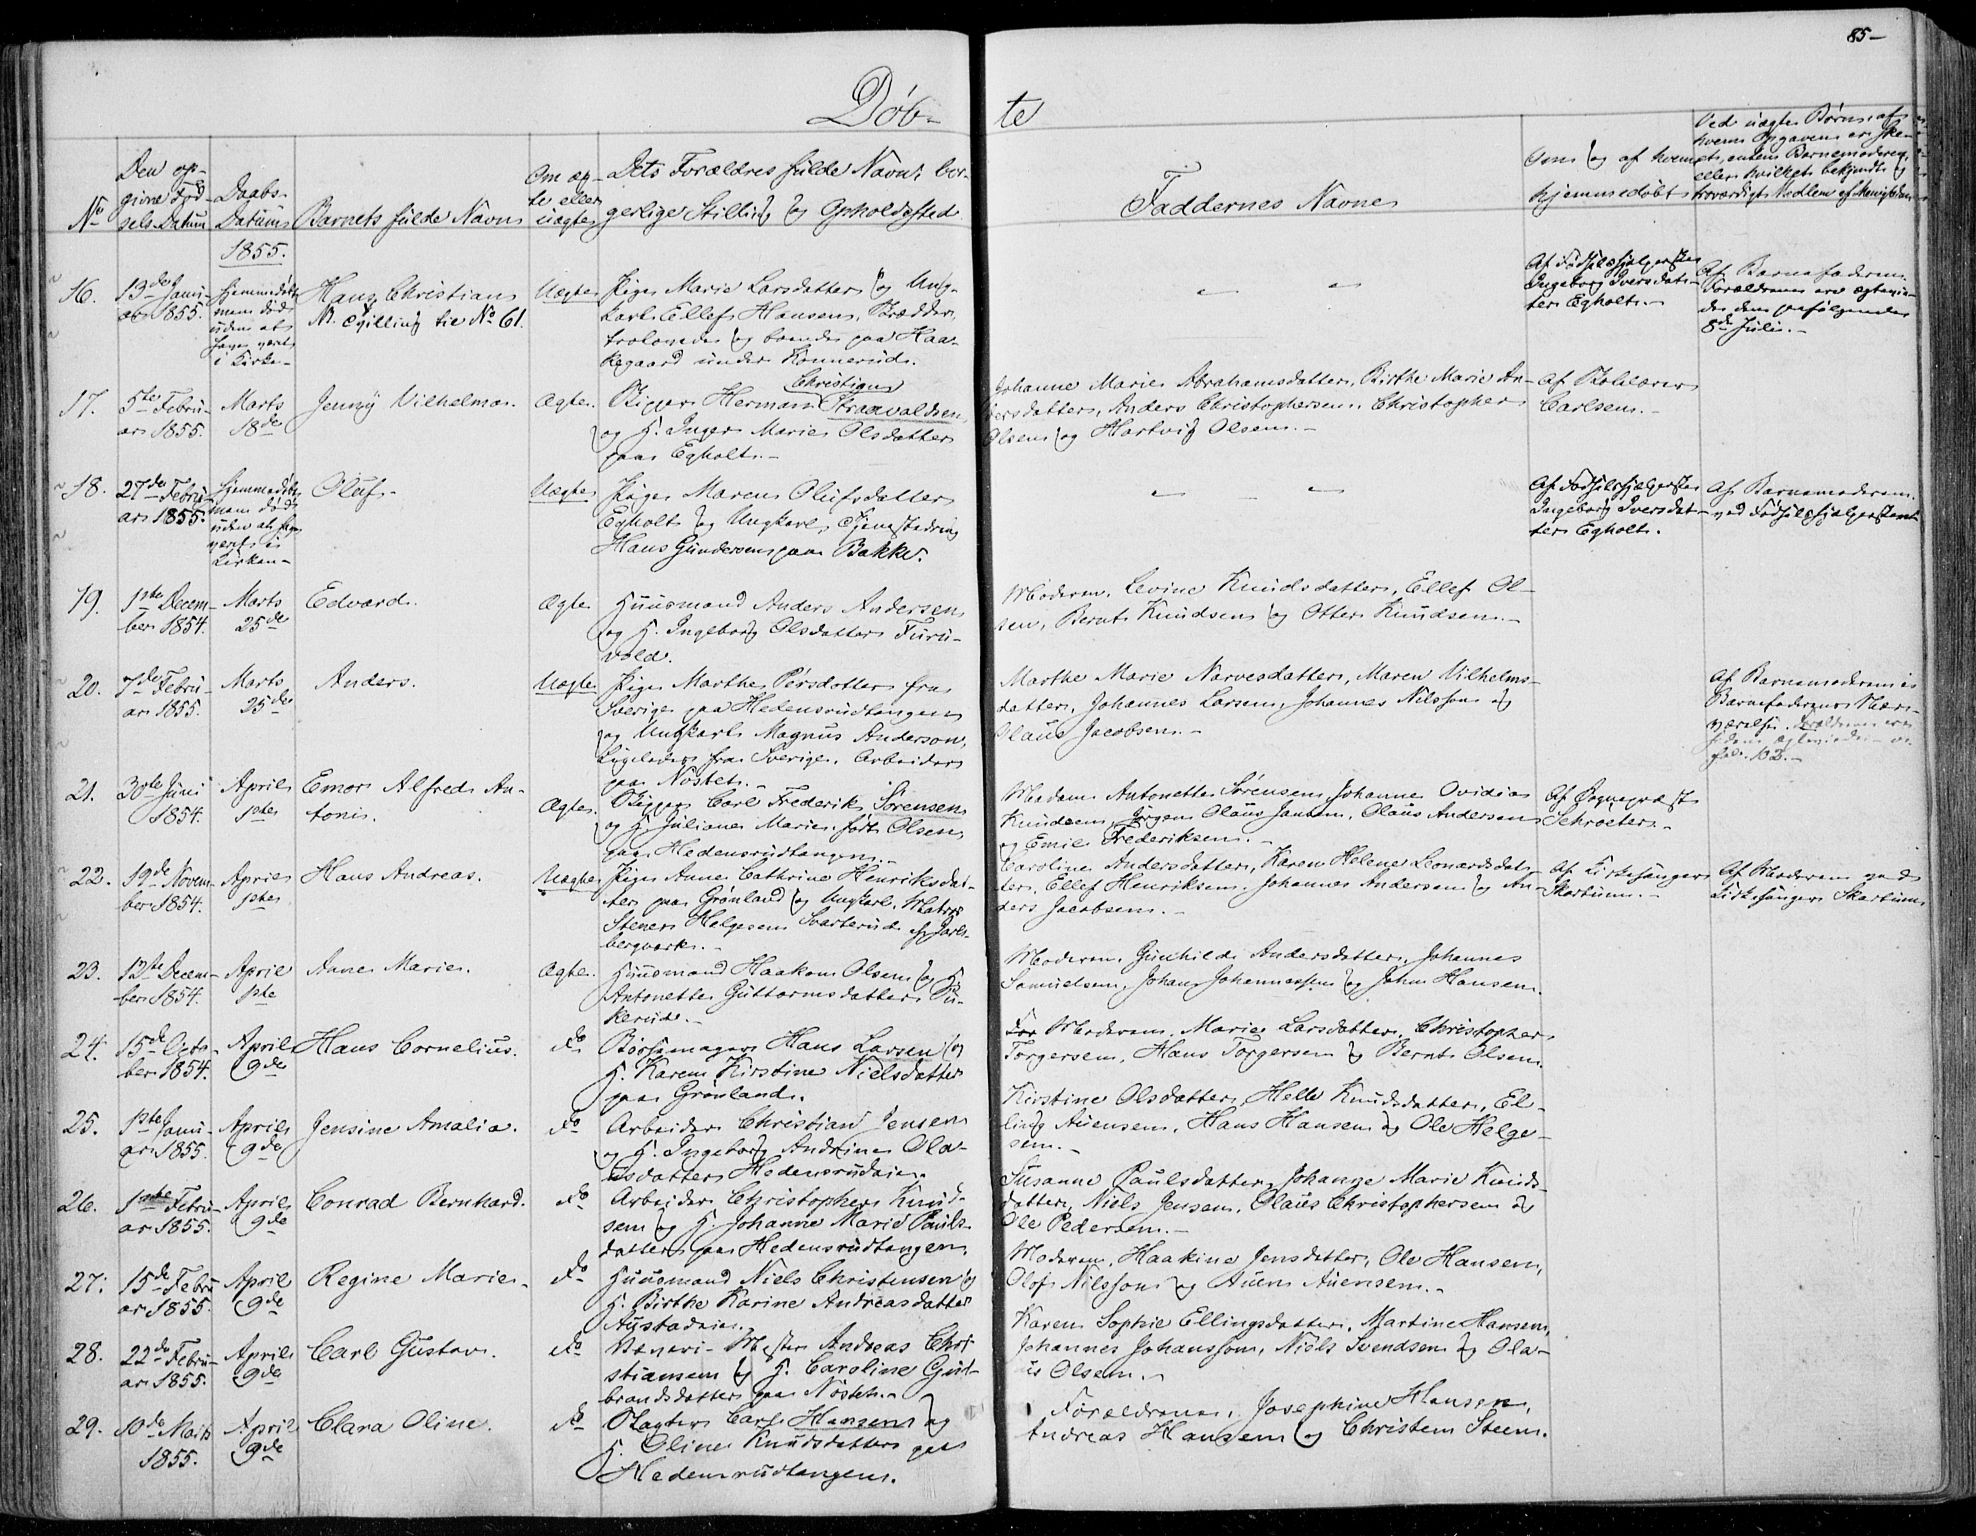 85-
Døb-
te
No
Den op-
givne Fød-
sels-Datum
Daabs-
Datum
1855.
Barnets fulde Navn
Om æg-
te eller
uægte
Dets Forældres fulde Navn, bor-
gerlige Stilling og Opholdssted
Faddernes Navne
Om og af hvem
hjemmedøbt
Ved uægte Børn: af
hvem Opgaven er ske-
et, enten Barnemoderen,
eller hvilket bekjendt og
troværdigt Medlem af Menigheden
16.
13de Janu-
ar 1855.
hjemmedøbt
men død
uden at
have været
i Kirke-
Hans Christian
Uægte
Pige Marie Larsdatter og Ung-
karl Ellef Hansen,
trolovede og boende paa Haa-
kegaard under Konnerud.
Af Fødselshjælpersken
Ingeborg Iversdat-
ter Egholt.-
Af Barnefaderen.
Forældrene ere ægtevie-
de den paafølgende
8de Juli.-
17.
5te Febru-
ar 1855.
Marts
18de
Jenny Vilhelma.
Ægte.
Rigger Herman Christian Straavaldsen
og H. Inger Marie Olsdatter
paa Egholt.-
Johanne Marie Abrahamsdatter, Birthe Marie An-
dersdatter, Anders Christophersen, Christopher
Olsen og Hartvig Olsen.-
Carlsen.-
18.
27de Febru-
ar 1855.
hjemmedøbt
men død
uden at have
været i
Kirken-
Oluf-
Uægte
Pige Maren Olufsdatter
Egholt og Ungkarl,
Hans Gundersen paa Bakke.
Af Fødselshjælpersken
Ingeborg Iversdat-
ter Egholt.
Af Barnemoderen
ved Fødselshjælpersken
19.
1ste Decem-
ber 1854.
Marts
25de
Edvard.
Ægte
Huusmand Anders Andersen
og H. Ingeborg Olsdatter Furu-
vold.
Moderen, Levine Knudsdatter, Ellef Ol-
sen, Bernt Knudsen og Otter Knudsen.-
20.
7de Febru-
ar 1855.
Marts
25de
Anders.
Uægte
Pige Marthe Persdatter fra
Sverige paa Hedensrudtangen
og Ungkarl Magnus Anderson,
Ligeledes fra Sverige, Arbeider
paa Nøstet.-
Marthe Marie Narvesdatter, Maren Vilhelms-
datter, Johannes Larsen, Johannes Nilsson og
Olaus Jacobsen.-
Af Barnemoderen i
Barnefaderens Nær-
værelse.
21.
30te Juni
1854.
April
1ste
Emor Alfred An-
toni.
Ægte.
Rigger Carl Frederik Sørensen
og H. Juliane Marie født Olsen
paa Hedensrudtangen.-
Madam Antonette Sørensen, Johanne Ovidia
Knudsen, Jørgen Olaus Jansen, Olaus Andersen
og Emil Frederiksen.-
Af Sognepræst
Schroeter.-
22.
19de Novem-
ber 1854.
April
1ste
Hans Andreas.
Uægte
Pige Anne Cathrine Henriksdat-
ter paa Grønland og Ungkarl, Matros
Stener Helgesen Svarterud af Jarls-
bergværk.-
Caroline Andersdatter, Karen Helene Leonardsdat-
ter, Ellef Henriksen, Johannes Andersen og An-
ders Jacobsen.-
Af Kirkesanger
Skartum.-
Af Moderen ved
Kirkesanger Skartum
23.
12te Decem-
ber 1854.
April
1ste
Anne Marie.
Ægte.
Huusmand Haakon Olsen og H.
Antonette Guttormsdatter
kerud.-
Moderen, Gunhild Andersdatter, Johannes
Samuelsen, Johan Johannessen og John Hansen.
24.
15de Octo-
ber 1854.
April
9de
Hans Cornelius.
do
Børsemager Hans Larsen og
H. Karen Kirstine Nielsdatter
paa Grønland.
Moderen, Marie Larsdatter, Christopher
Torgersen, Hans Torgersen og Bernt Olsen.
25.
1ste Janu-
ar 1855.
April
9de
Jensine Amalia.
do
Arbeider Christian Jensen
og H. Ingeborg Andrine Ola-
usdatter Hedensrudeie.
Kirstine Olsdatter, Helle Knudsdatter, El-
ling Auensen, Hans Hansen og Ole Helge-
sen.-
26.
1ste Febru-
ar 1855.
April
9de
Conrad Bernhard.
do
Arbeider Christopher Knud-
sen og H. Johanne Marie Pauls-
datter paa Hedensrudtangen.
Susanne Paulsdatter, Johanne Marie Knuds-
datter, Niels Jensen, Olaus Christophersen og
Ole Pedersen.-
27.
15de Febru-
ar 1855.
April
9de
Regine Marie-
do
Huusmand Niels Christensen og
H. Birthe Karine Andreasdatter
Austadeie.
Moderen, Haakine Jensdatter, Ole Hansen,
Olof Nilsson og Auen Auensen.-
28.
22de Febru-
ar 1855.
April
9de
Carl Gustav.
do
Væveri-Mester Andreas Chri-
stiansen og H. Caroline Gud-
brandsdatter paa Nøstet.-
Karen Sophie Ellingsdatter, Martine Hansen,
Johannes Johansson, Niels Svendsen og Ola-
us Olsen.-
29.
10de Marts
1855.
April
9de
Clara Oline.
do
Slagter Carl Hansen og
H. Oline Knudsdatter paa
Hedensrudtangen.
Forældrene, Josephine Hansen,
Andreas Hansen og Christen Steen.